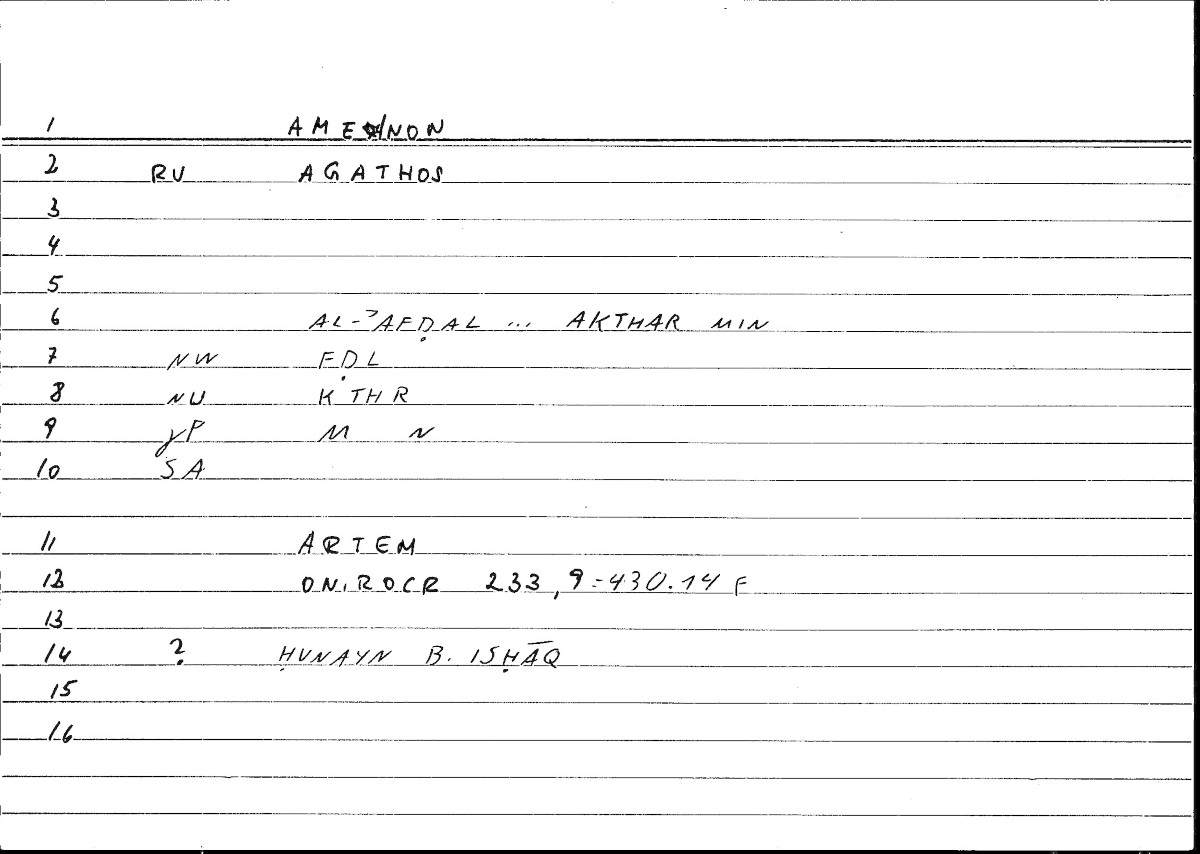 1 AMEINON
2 RU AGATHOS
3
4
5
6 AL-ʾAFḌAL ... AKTHAR MIN
7 NW FḌL
8 NU KTHR
9 γP M N
10 SA
11 ARTEM
12 ONIROCR 233,9=430.14 F
13
14 ? ḤUNAYN B. ISḤĀQ
15
16